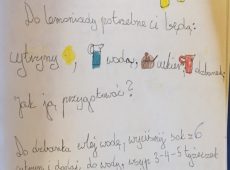 Do lemoniady potrzebne ci będą:
cytryny, woda, cukier, dzbanek
jak ją przygotować?
Do dzbanka wlej wodę, wyciśnij sok z 6
cytryn i dodaj do wody, wsyp 3-4-5 łyżeczek